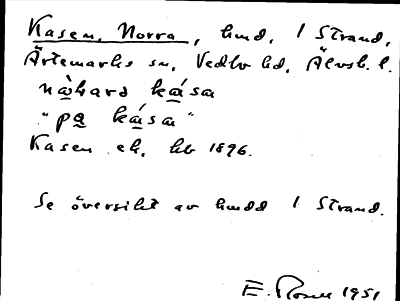 Kasen, Norra, hmd, 1 Strand,
Ärtemarks sn, Vedbo hd, Älvsb. l.
nò̱hard ká̱sa
"pa̱ ká̱sa"
Kasen ek. kb 1896.
Se översikt av hmdd 1 Strand.
E. Rosell 1951